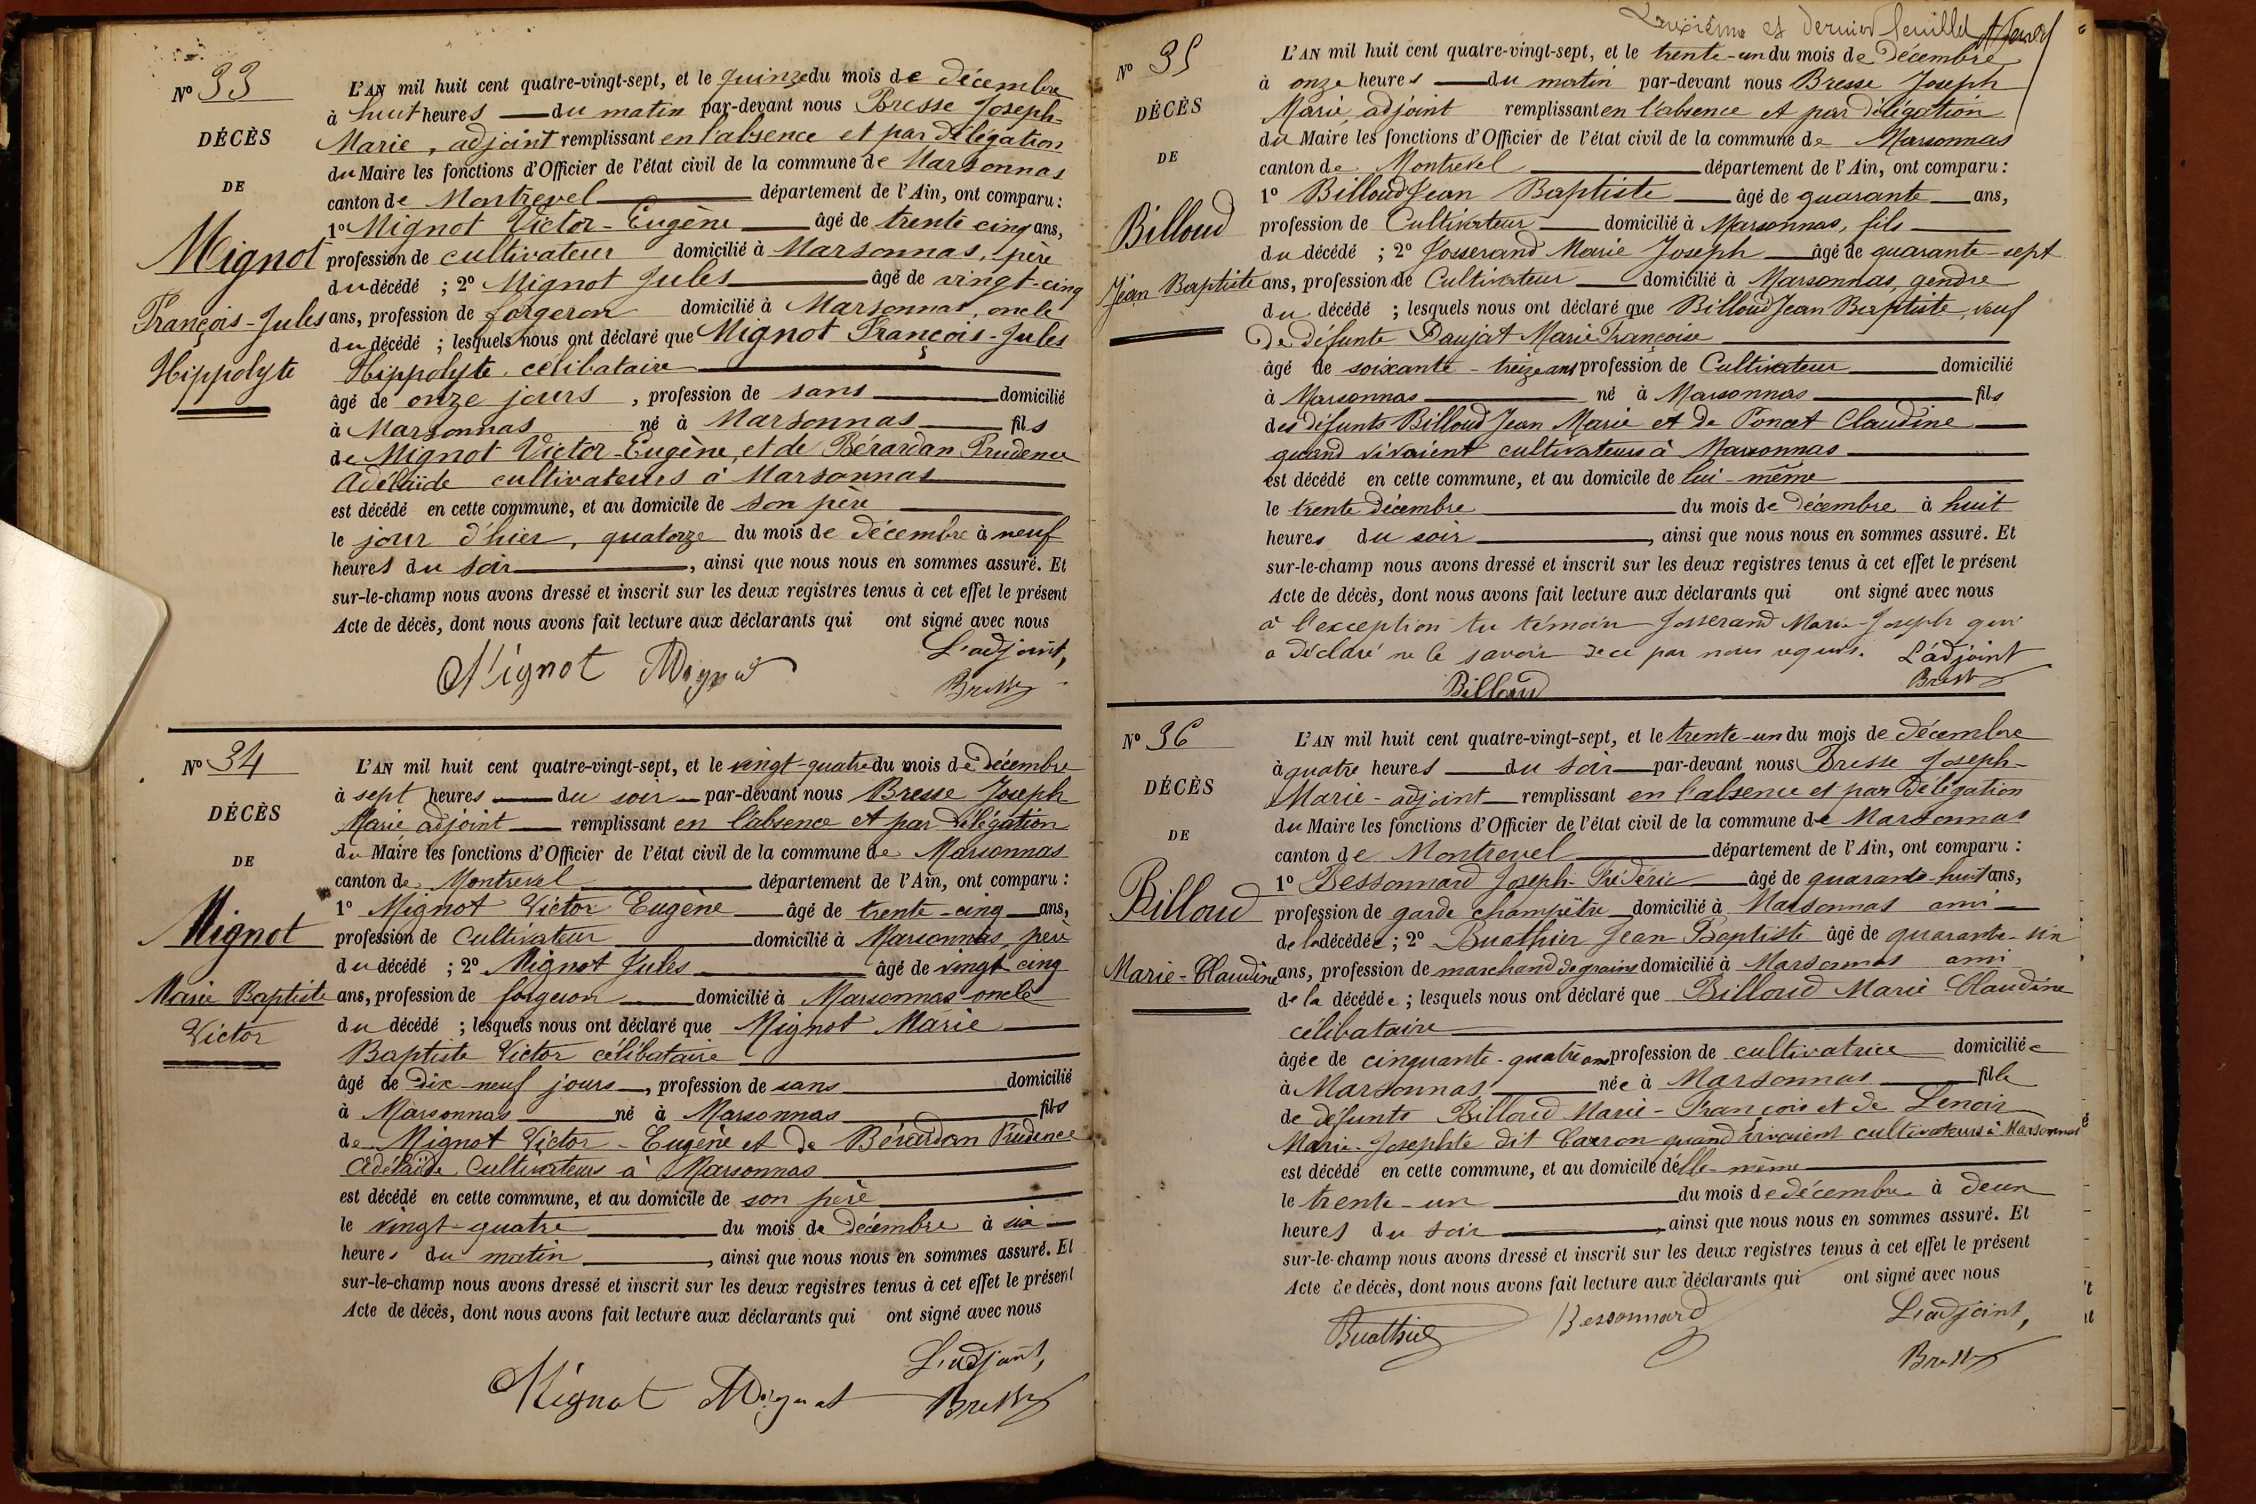 Nº 33
DÉCÈS
DE
Mignot
François-Jules
Hippolyte
L'AN mil huit cent quatre-vingt-sept, et le quinze du mois de décembre
à huit heures du matin par-devant nous Bresse Joseph-
Marie, adjoint remplissant en l'absence et par délégation
du Maire les fonctions d'Officier de l'état civil de la commune de Marsonnas
canton de Montrevel département de l'Ain, ont comparu :
1º Mignot Victor-Eugène âgé de trente cinq ans,
profession de cultivateur domicilié à Marsonnas, père
du décédé ; 2º Mignot Jules âgé de vingt-cinq
ans, profession de forgeron domicilié à Marsonnas, oncle
du décédé ; lesquels nous ont déclaré que Mignot François-Jules
Hippolyte célibataire
âgé de onze jours, profession de sans domicilié
à Marsonnas né à Marsonnas fils
de Mignot Victor-Eugène, et de Bérardan Prudence
Adélaïde cultivateurs à Marsonnas
est décédé en cette commune, et au domicile de son père
le jour d'hier, quatorze du mois de décembre à neuf
heures du soir, ainsi que nous nous en sommes assuré. Et
sur-le-champ nous avons dressé et inscrit sur les deux registres tenus à cet effet le présent
Acte de décès, dont nous avons fait lecture aux déclarants qui ont signé avec nous
L'adjoint,
Mignot Mignot Bresse
Nº 34
DÉCÈS
DE
Mignot
Marie Baptiste
Victor
L'AN mil huit cent quatre-vingt-sept, et le vingt-quatre du mois de décembre
à sept heures du soir par-devant nous Bresse Joseph
Marie adjoint remplissant en l'absence et par délégation
du Maire les fonctions d'Officier de l'état civil de la commune de Marsonnas
canton de Montrevel département de l'Ain, ont comparu :
1º Mignot Victor Eugène âgé de trente-cinq ans,
profession de Cultivateur domicilié à Marsonnas, père
du décédé ; 2º Mignot Jules âgé de vingt cinq
ans, profession de forgeron domicilié à Marsonnas oncle
du décédé ; lesquels nous ont déclaré que Mignot Marie
Baptiste Victor célibataire
âgé de dix-neuf jours, profession de sans domicilié
à Marsonnas né à Marsonnas fils
de Mignot Victor-Eugène et de Bérardan Prudence
Adélaïde Cultivateurs à Marsonnas
est décédé en cette commune, et au domicile de son père
le vingt-quatre du mois de décembre à six
heures du matin, ainsi que nous nous en sommes assuré. Et
sur-le-champ nous avons dressé et inscrit sur les deux registres tenus à cet effet le présent
Acte de décès, dont nous avons fait lecture aux déclarants qui ont signé avec nous
L'adjoint,
Mignot Mignot Bresse
et dernier feuillet
Nº 35
DÉCÈS
DE
Billoud
Jean Baptiste
L'AN mil huit cent quatre-vingt-sept, et le trente-un du mois de Décembre
à onze heures du matin par-devant nous Bresse Joseph
Marie, adjoint remplissant en l'absence et par délégation
du Maire les fonctions d'Officier de l'état civil de la commune de Marsonnas
canton de Montrevel département de l'Ain, ont comparu :
1º Billoud Jean Baptiste âgé de quarante ans,
profession de Cultivateur domicilié à Marsonnas, fils
du décédé ; 2º Josserand Marie Joseph âgé de quarante-sept
ans, profession de Cultivateur domicilié à Marsonnas, gendre
du décédé ; lesquels nous ont déclaré que Billoud Jean Baptiste, veuf
de défunte Daujat Marie Françoise
âgé de soixante-treize ans profession de Cultivateur domicilié
à Marsonnas né à Marsonnas fils
des défunts Billoud Jean Marie et de Poncet Claudine
quand vivaient cultivateurs à Marsonnas
est décédé en cette commune, et au domicile de lui-même
le trente décembre du mois de décembre à huit
heures du soir, ainsi que nous nous en sommes assuré. Et
sur-le-champ nous avons dressé et inscrit sur les deux registres tenus à cet effet le présent
Acte de décès, dont nous avons fait lecture aux déclarants qui ont signé avec nous
à l'exception du témoin Josserand Marie-Joseph qui
a déclaré ne le savoir de ce par nous requis. L'adjoint
Billoud Bresse
Nº 36
DÉCÈS
DE
Billoud
Marie-Claudine
L'AN mil huit cent quatre-vingt-sept, et le trente-un du mois de décembre
à quatre heures du soir par-devant nous Bresse Joseph-
Marie-adjoint remplissant en l'absence et par délégation
du Maire les fonctions d'Officier de l'état civil de la commune de Marsonnas
canton de Montrevel département de l'Ain, ont comparu :
1º Bessonnard Joseph-Frédéric âgé de quarante-huit ans,
profession de garde champêtre domicilié à Marsonnas ami
de la décédée ; 2º Buathier Jean Baptiste âgé de quarante-un
ans, profession de marchand de grains domicilié à Marsonnas ami
de la décédée ; lesquels nous ont déclaré que Billoud Marie Claudine
célibataire
âgée de cinquante-quatre ans profession de cultivatrice domiciliée
à Marsonnas née à Marsonnas fille
de défunts Billoud Marie-François et de Lenoir
Marie-Josephte dit Carron quand vivaient cultivateurs à Marsonnas
est décédé en cette commune, et au domicile d'elle-même
le trente-un du mois de décembre à deux
heures du soir, ainsi que nous nous en sommes assuré. Et
sur-le-champ nous avons dressé et inscrit sur les deux registres tenus à cet effet le présent
Acte de décès, dont nous avons fait lecture aux déclarants qui ont signé avec nous
L'adjoint,
Buathier Bessonnard Bresse